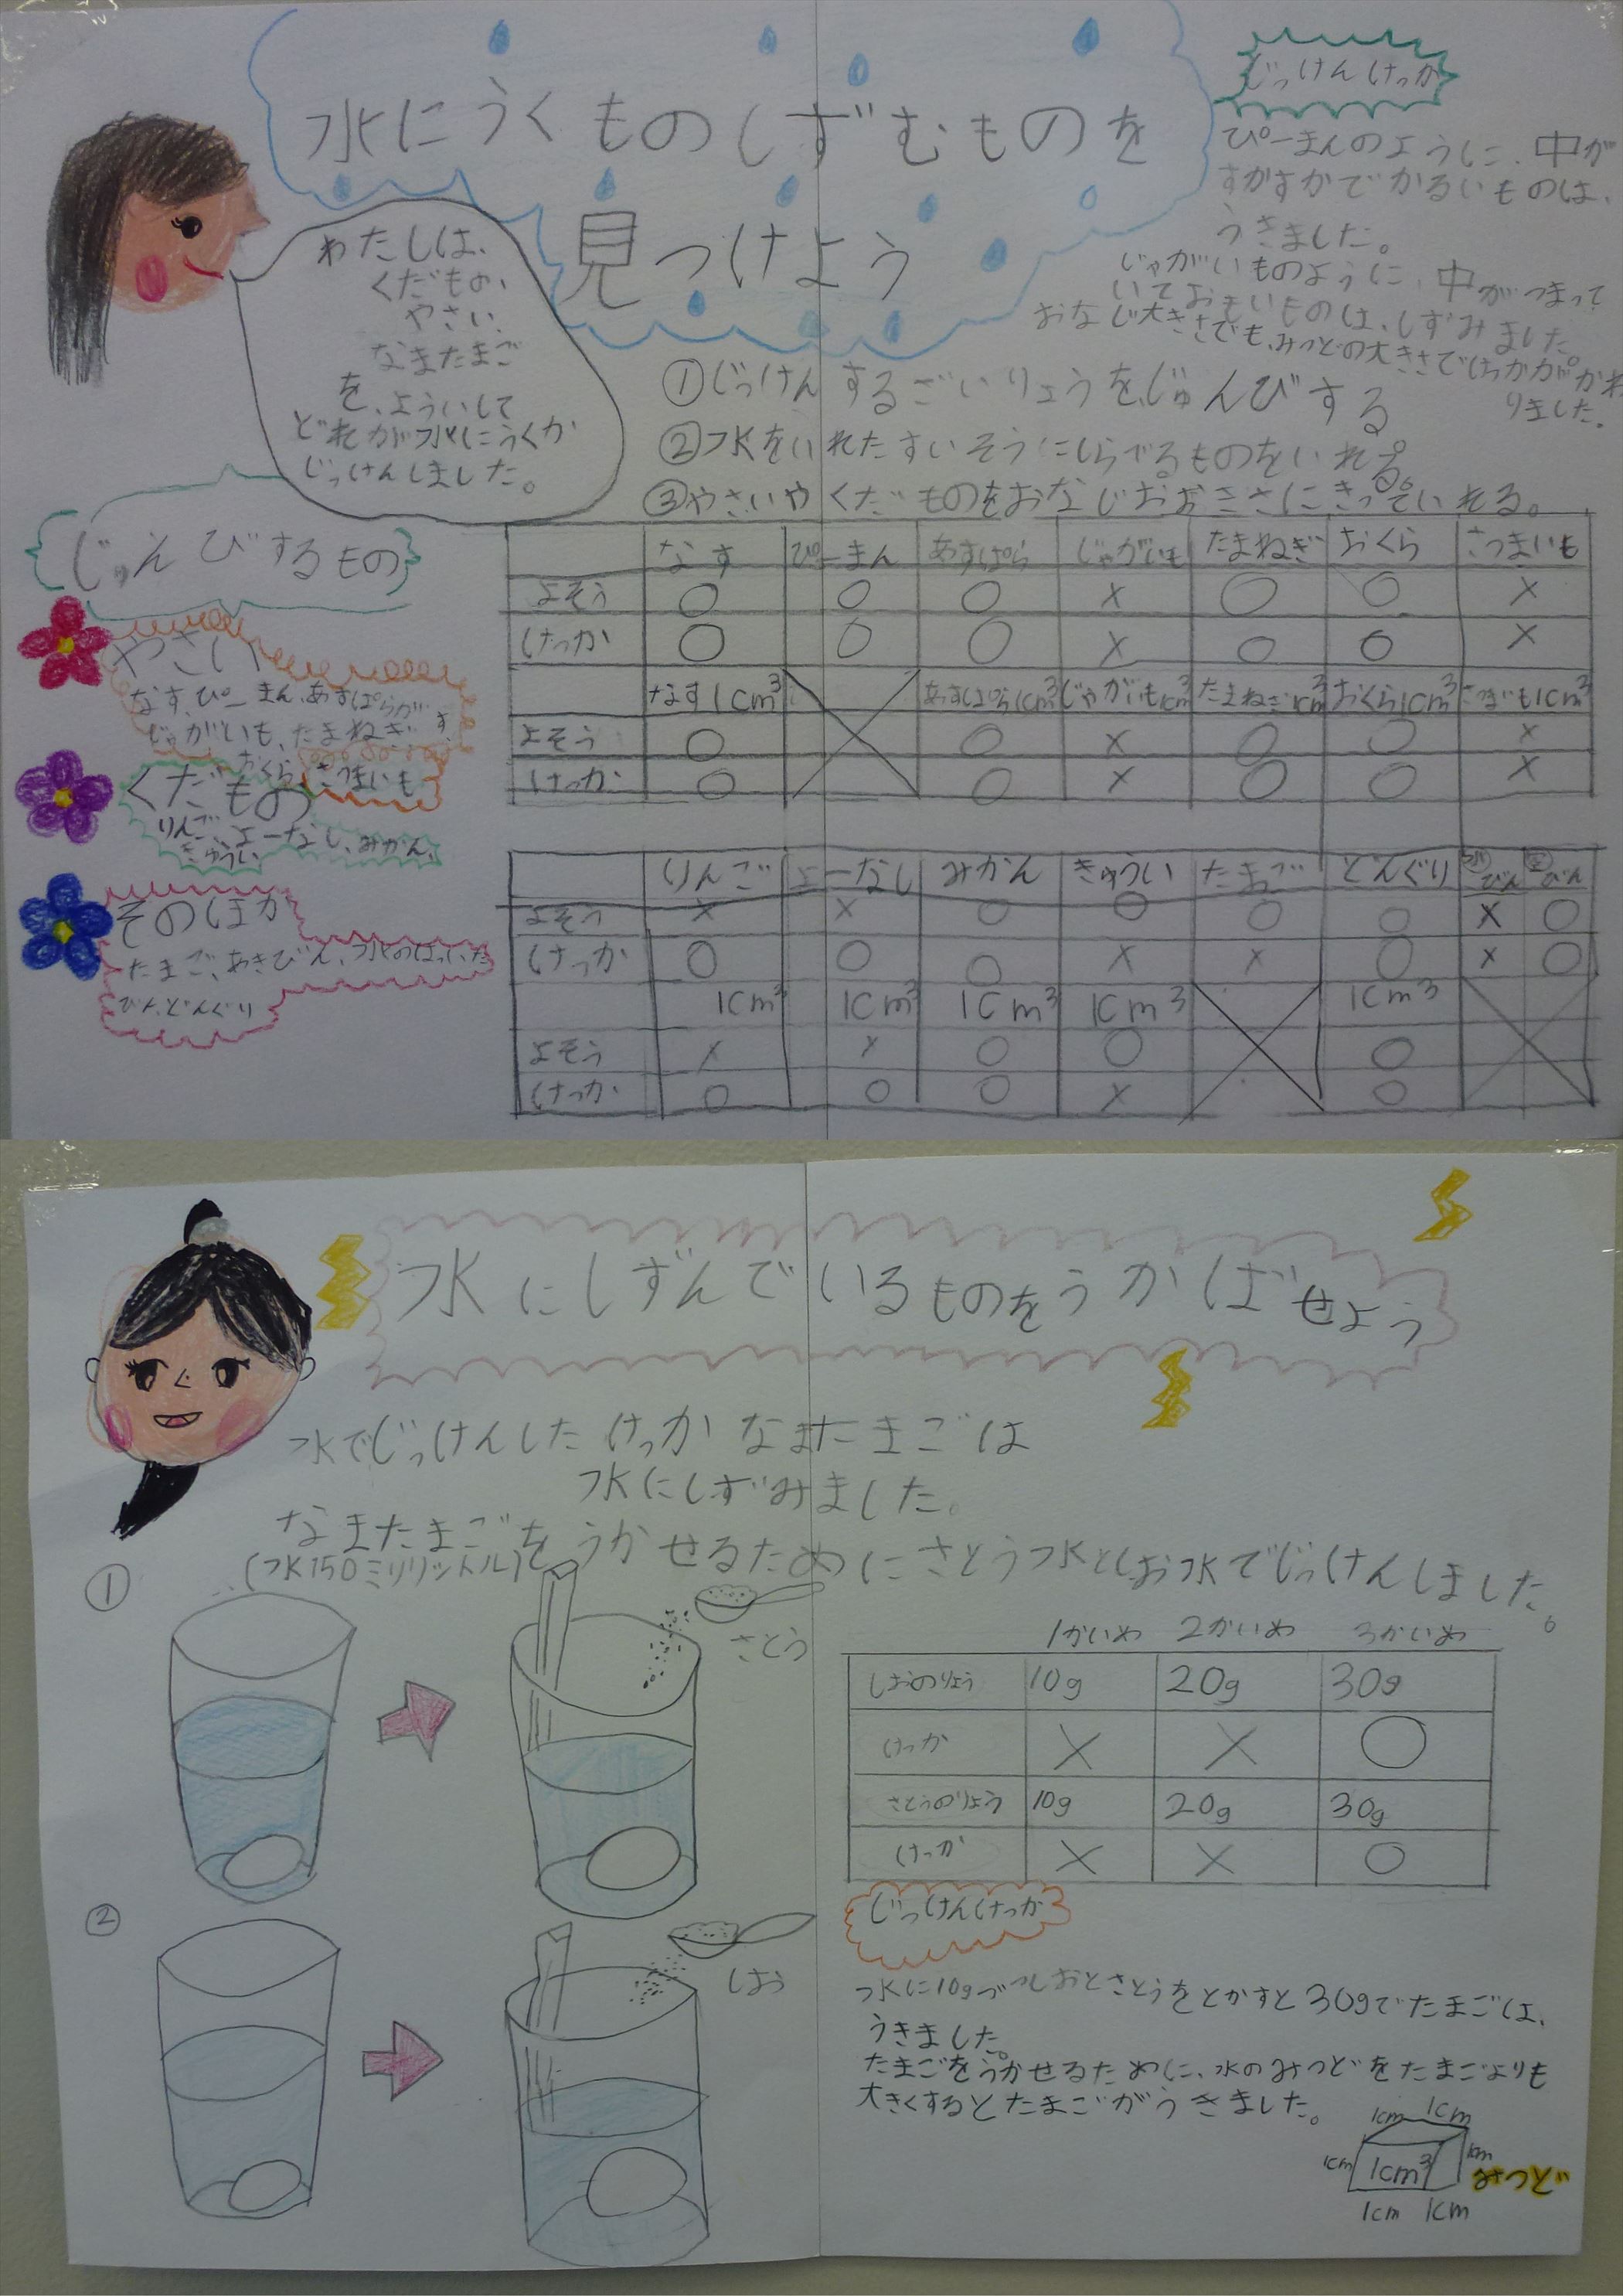 水にうくものしずむものを
見つけよう
わたしは、
くだもの、
やさい、
なまたまご
を、よういして
どれが水にうくか
じっけんしました。
じっけんけっか
ぴーまんのように、中が
すかすかでかるいものは、
うきました。
じゃがいものように、中がつまって
いておもいものは、しずみました。
おなじ大きさでも、みつどの大きさでけっかが、かわ
りました。
①じっけんするざいりょうをじゅんびする
②水をいれたすいそうにしらべるものをいれる。
③やさいやくだものをおなじおおきさにきっていれる。
じゅんびするもの
やさい
なす、ぴーまん、あすぱらがす、
じゃがいも、たまねぎ
おくら、さつまいも
くだもの
りんご、よーなし、みかん、
きゅうい
そのほか
たまご、あきびん、水のはいった
びん、どんぐり
なす ぴーまん あすぱら じゃがいも たまねぎ おくら さつまいも
よそう ○ ○ ○ × ○ ○ ×
けっか ○ ○ ○ × ○ ○ ×
なす1cm³ あすぱら1cm³ じゃがいも1cm³ たまねぎ1cm³ おくら1cm³ さつまいも1cm³
よそう ○ ○ × ○ ○ ×
けっか ○ ○ × ○ ○ ×
りんご よーなし みかん きゅうい たまご どんぐり びん びん
よそう × × ○ ○ ○ ○ × ○
けっか ○ ○ ○ × × ○ × ○
1cm³ 1cm³ 1cm³ 1cm³ 1cm³
よそう × × ○ ○ ○
けっか ○ ○ ○ × ○
水にしずんでいるものをうかばせよう
水でじっけんしたけっかなまたまごは
水にしずみました。
なまたまごをうかせるためにさとう水としお水でじっけんしました。
(水150ミリリットル)
①
さとう
②
しお
1かいめ 2かいめ 3かいめ
しおのりょう 10g 20g 30g
けっか × × ○
さとうのりょう 10g 20g 30g
けっか × × ○
じっけんけっか
水に10gづつしおとさとうをとかすと30gでたまごは、
うきました。
たまごをうかせるために、水のみつどをたまごよりも
大きくするとたまごがうきました。
1cm 1cm
1cm 1cm³ 1cm みつど
1cm 1cm